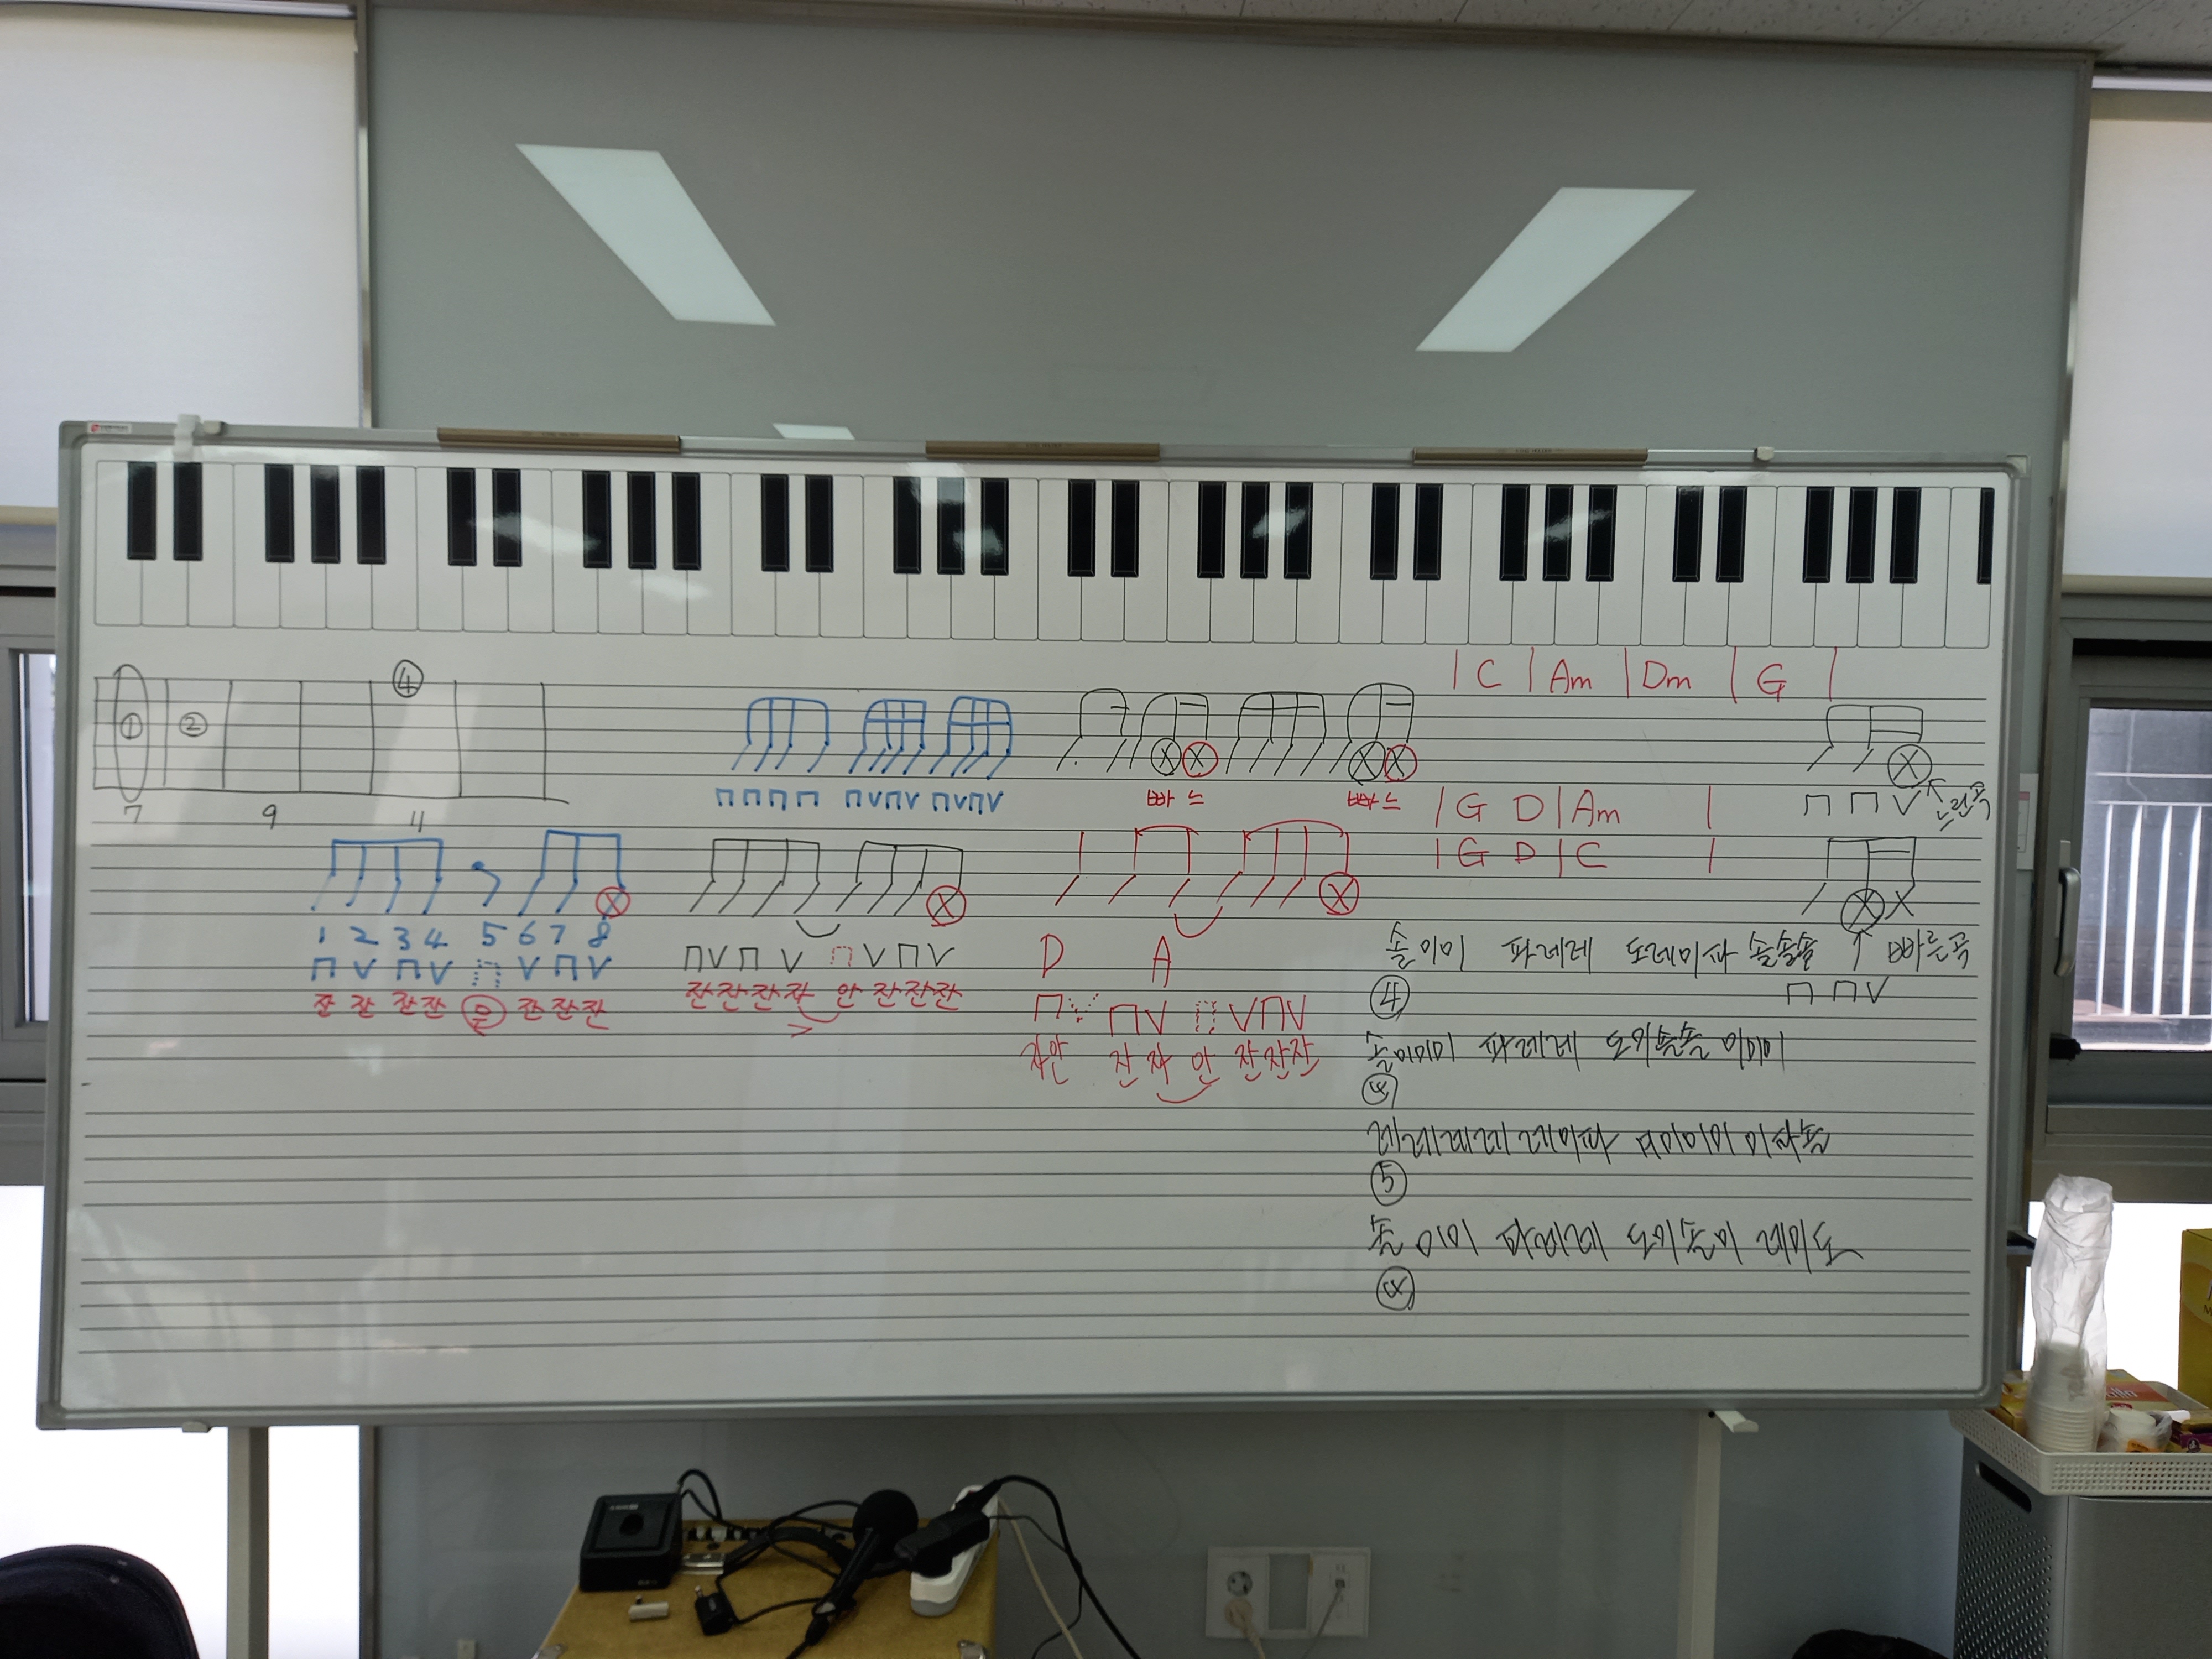 | C | Am | Dm | G |
① ② ④
7 9 11
⊓⊓⊓⊓ ⊓V⊓V ⊓V⊓V
빠 느 빠 느
| G D | Am |
⊓ ⊓ V
느린곡
| G D | C |
1 2 3 4 5 6 7 8
⊓ V ⊓ V ⊓ V ⊓ V
잔 잔 잔 잔 읏 잔 잔 잔
⊓ V ⊓ V ⊓ V ⊓ V
잔 잔 잔 자 안 잔 잔 잔
D A
⊓ V ⊓ V ⊓ V ⊓ V
자안 잔 자 안 잔 잔 잔
솔미미 파레레 도레미파 솔솔솔
빠른곡
⊓ ⊓V
④
솔미미미 파레레 도미솔솔 미미미
④
레레레레 레미파 미미미미 미파솔
⑤
솔 미미 파레레 도미솔미 레미도
④